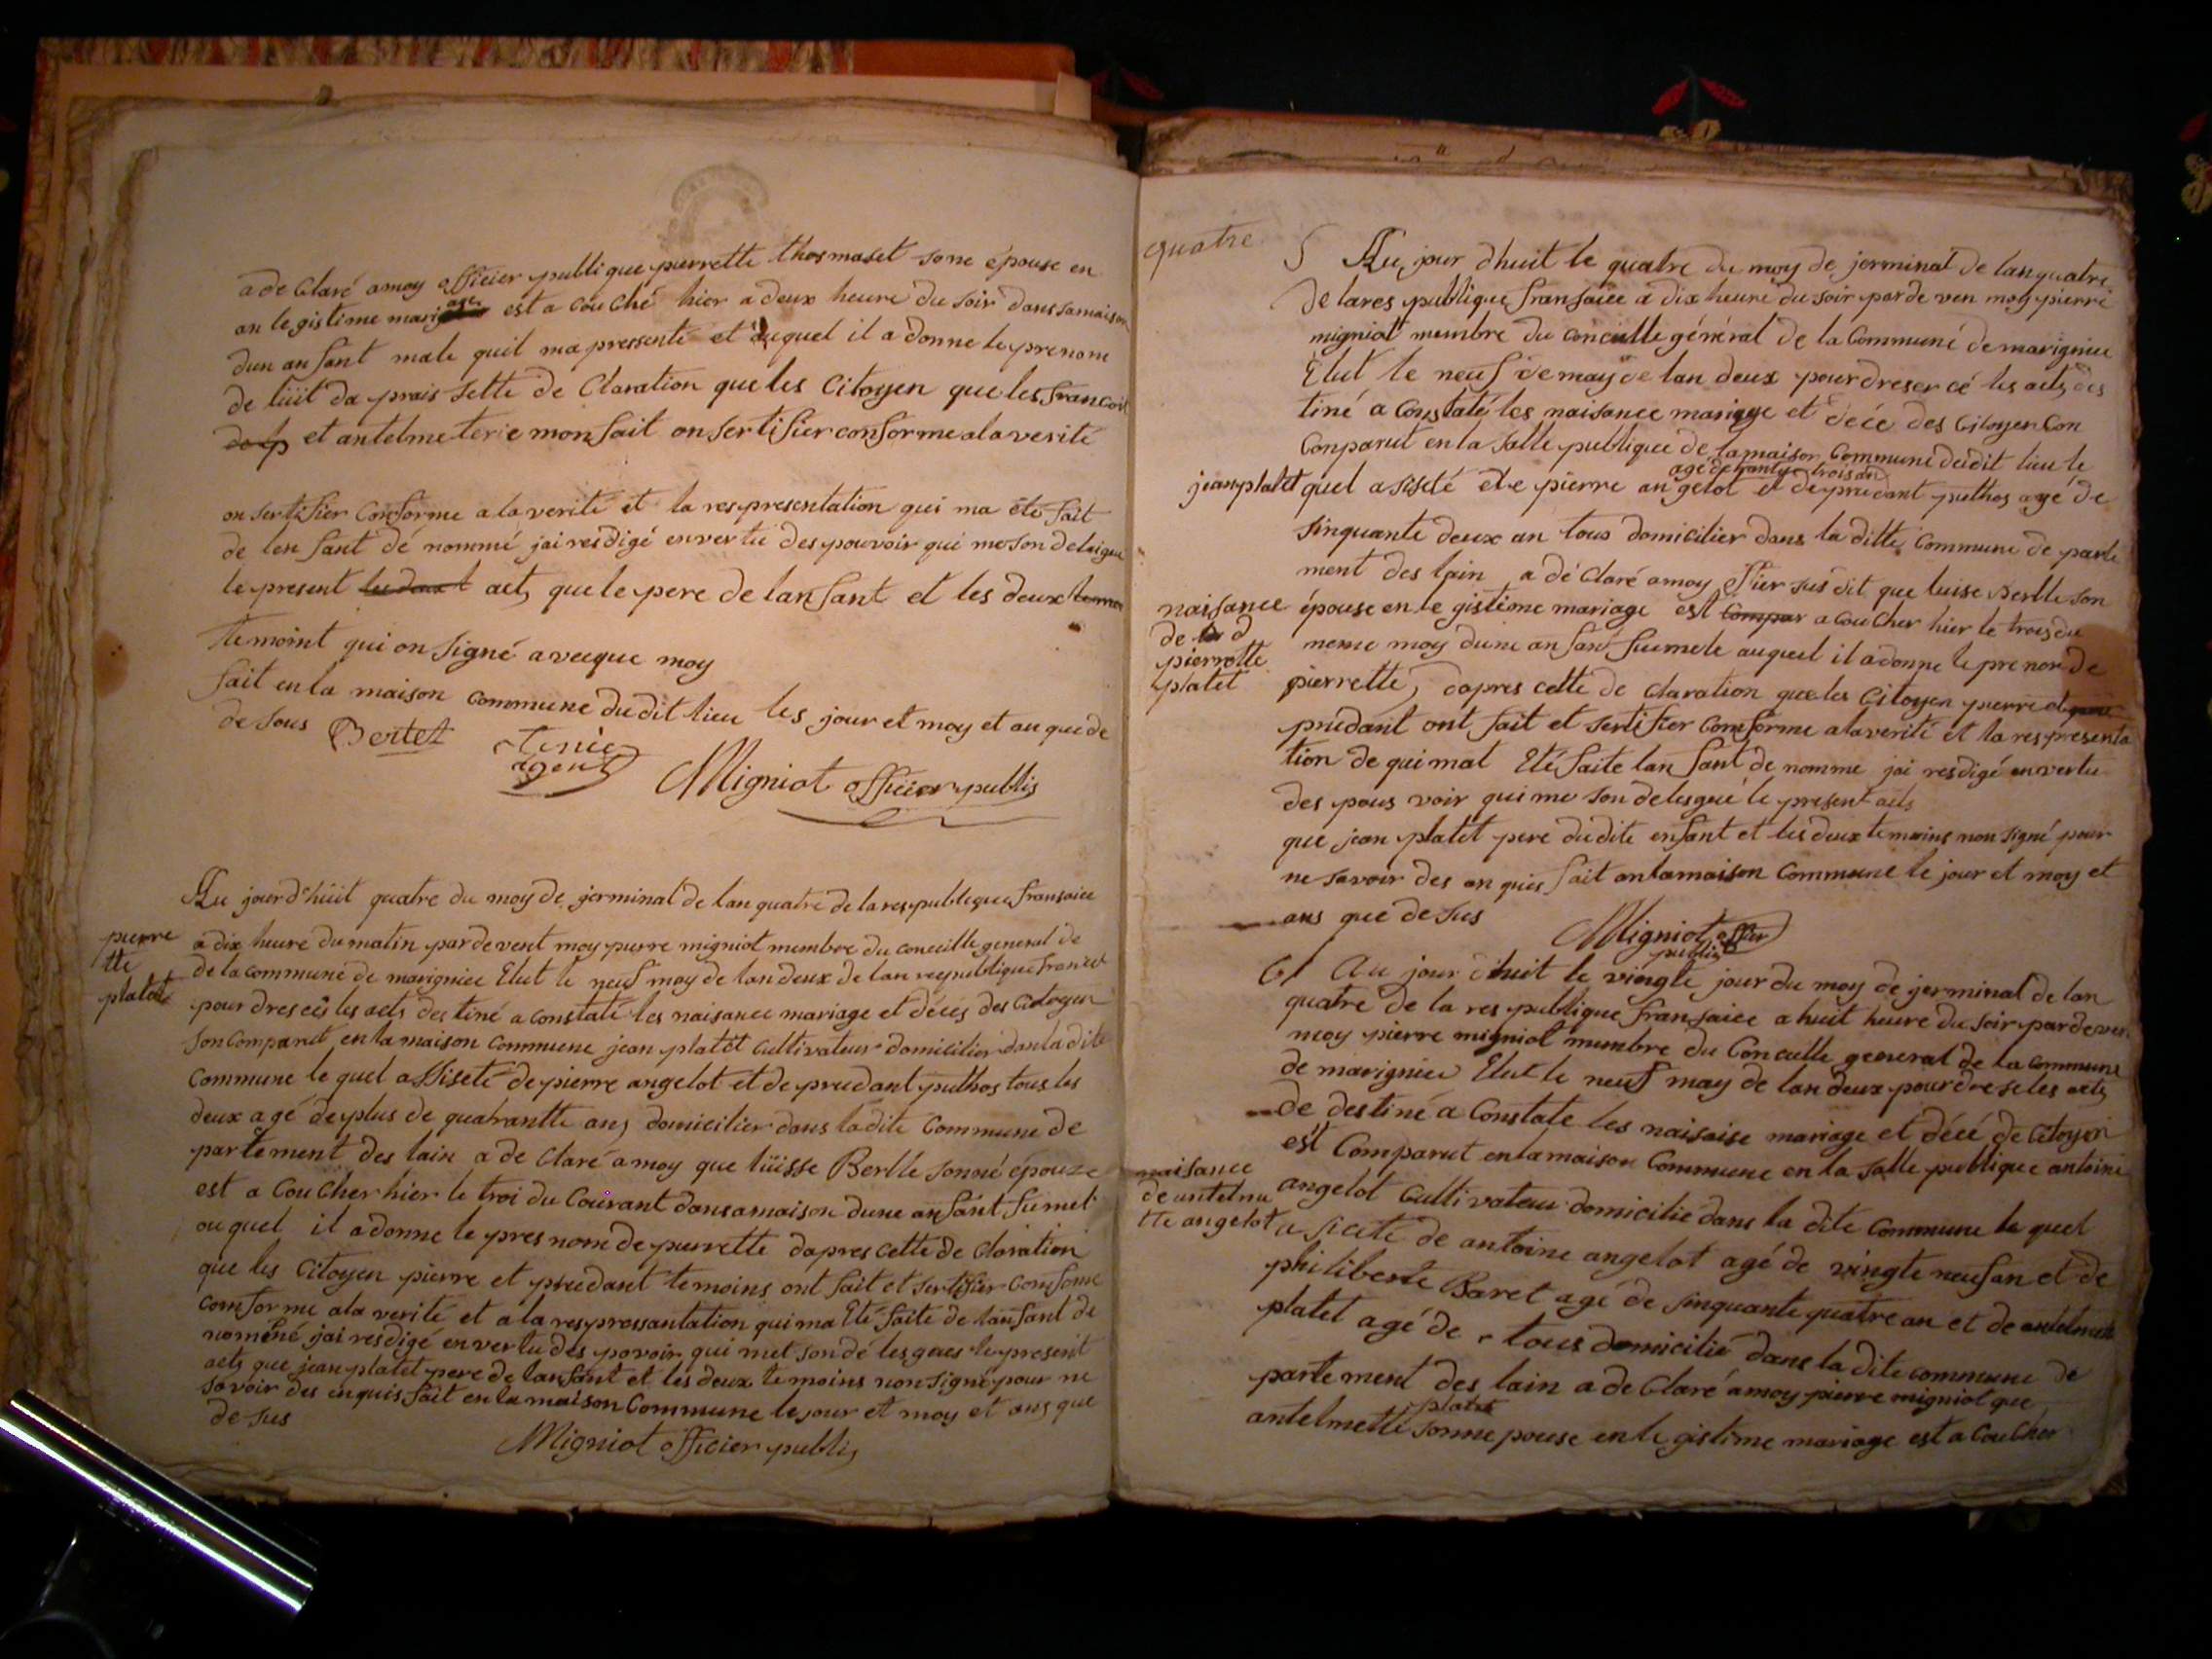 a de Claré a moy officier publique pierrette thosmaset sone épouse en
an legistime mariage est a couché hier a deux heure du soir dans sa maison
dun an fant male quil ma pressenté et auquel il a donne le prenone
de lüit da prais sette de Claration que les Citoyen que les francois
et antelme terie mon fait on sertifier conforme a la verité
on sertifier Conforme a la verité et la respresentation qui ma été fait
de len fant dé nommé jai resdigé en vertu des pouvoir qui me son delaigue
le present act, que le pere de lan fant et les deux
temoint qui on signé avecque moy
fait en la maison commune du dit lieu les jour et moy et au que de
de sous Bertet
terie
agent
Migniot officier publis
Au jour d'hüit quatre du moy de germinal de lan quatre de la respublique fransaice
pierre
tte
platet
a dix heure du matin par devent moy pierre migniot membre du conceille general de
de la communé de marigniee Elut le neuf moy de lan deux de lan respublique france
pour dresces les acts des tiné a constaté les naisance mariage et décés des Citoyen
son comparut en la maison commune jean platet cultivateur domicilier dan la dite
commune le quel assiseté de pierre angelot et de prudant puthos tous les
deux agé de plus de quatrantte ans domicilier dans la dite Commune de
partement des lain a de Claré a moy que lüisse Bertle sonné épouze
est a Cou Cher hier le troi du Courant dansamaison dune an fant fumel
ou quel il a donne le pres nom de pierrette dapres cette de Claration
que les Citoyen pierre et prudant temoins ont fait et sertifier Conforme
conforme a la verité et a la respressantation qui ma Eté faite de lan fant de
nommé jai resdigé en vertu des povoir qui met son dé lesgues le present
acts que jean platet pere de lanfant et les deux temoins non signe pour ne
savoir des enquis fait en la maison Commune le jour et moy et ans que
de sus
Migniot officier publis
quatre
5 Au jour dhuit le quatre du moy de jerminal de lan quatre
de la res publique fransaiee a dix heure du soir par de ven moy pierre
migniot membre du conceille général de la Communé de marigniee
Elut le neuf de may de lan deux pour dreser cé les acts des
tiné a Constaté les naisance mariage et decée des Citoyen Con
Conparut en la salle publique de la maison Commune du dit lieu le
jean platet
quel a sisété de pierre angelot et de prudant puthos agé de
sinquante deux an tous domicilier dans la ditte Commune de parte
ment des lain a dé Claré a moy offier sus dit que luise Bertle son
naissance
de
pierrette
platet
épouse en le gistime mariage est a cou Cher hier le trois du
meme moy dune an fant fumele auquel il a donne le pre nom de
pierrette, dapres cette de Claration que les Citoyen pierre et
prudant ont fait et sertifier Comforme a la verité et la respresenta
tion de qui mat Eté faite lan fant de nomme jai resdigé en vertu
des pous voir qui me son delesgué le present acts
que jean platet pere du dite enfant et les deux temoins non signé pour
ne savoir des an quis fait an la maison Commune le jour et moy et
ans que de sus
Migniot offier
publis
6 Au jour dhuit le vingte jour du moy de jerminal de lan
quatre de la res publique fransaice a huit heure du soir par de ven
moy pierre migniot membre du Conceille general de la commune
de marigniee Elut le neuf may de lan deux pour drese les acts
de destiné a Constate les naisaise mariage et décé de Citoyen
est Comparut en la maison Commune en la salle publique antoine
naisance
de antelme
tte angelot
angelot Cultivateur domicilié dans la dite Commune le quel
a siceté de antoine angelot agé de vingte neuf an et de
philiberte Baret agé de sinquante quatre an et de antelme
platet agé de tous domicilié dans la dite commune de
partement des lain a de Claré a moy pierre migniot que
platet
antelmette sonne pouse en le gistime mariage est a Cou Cher